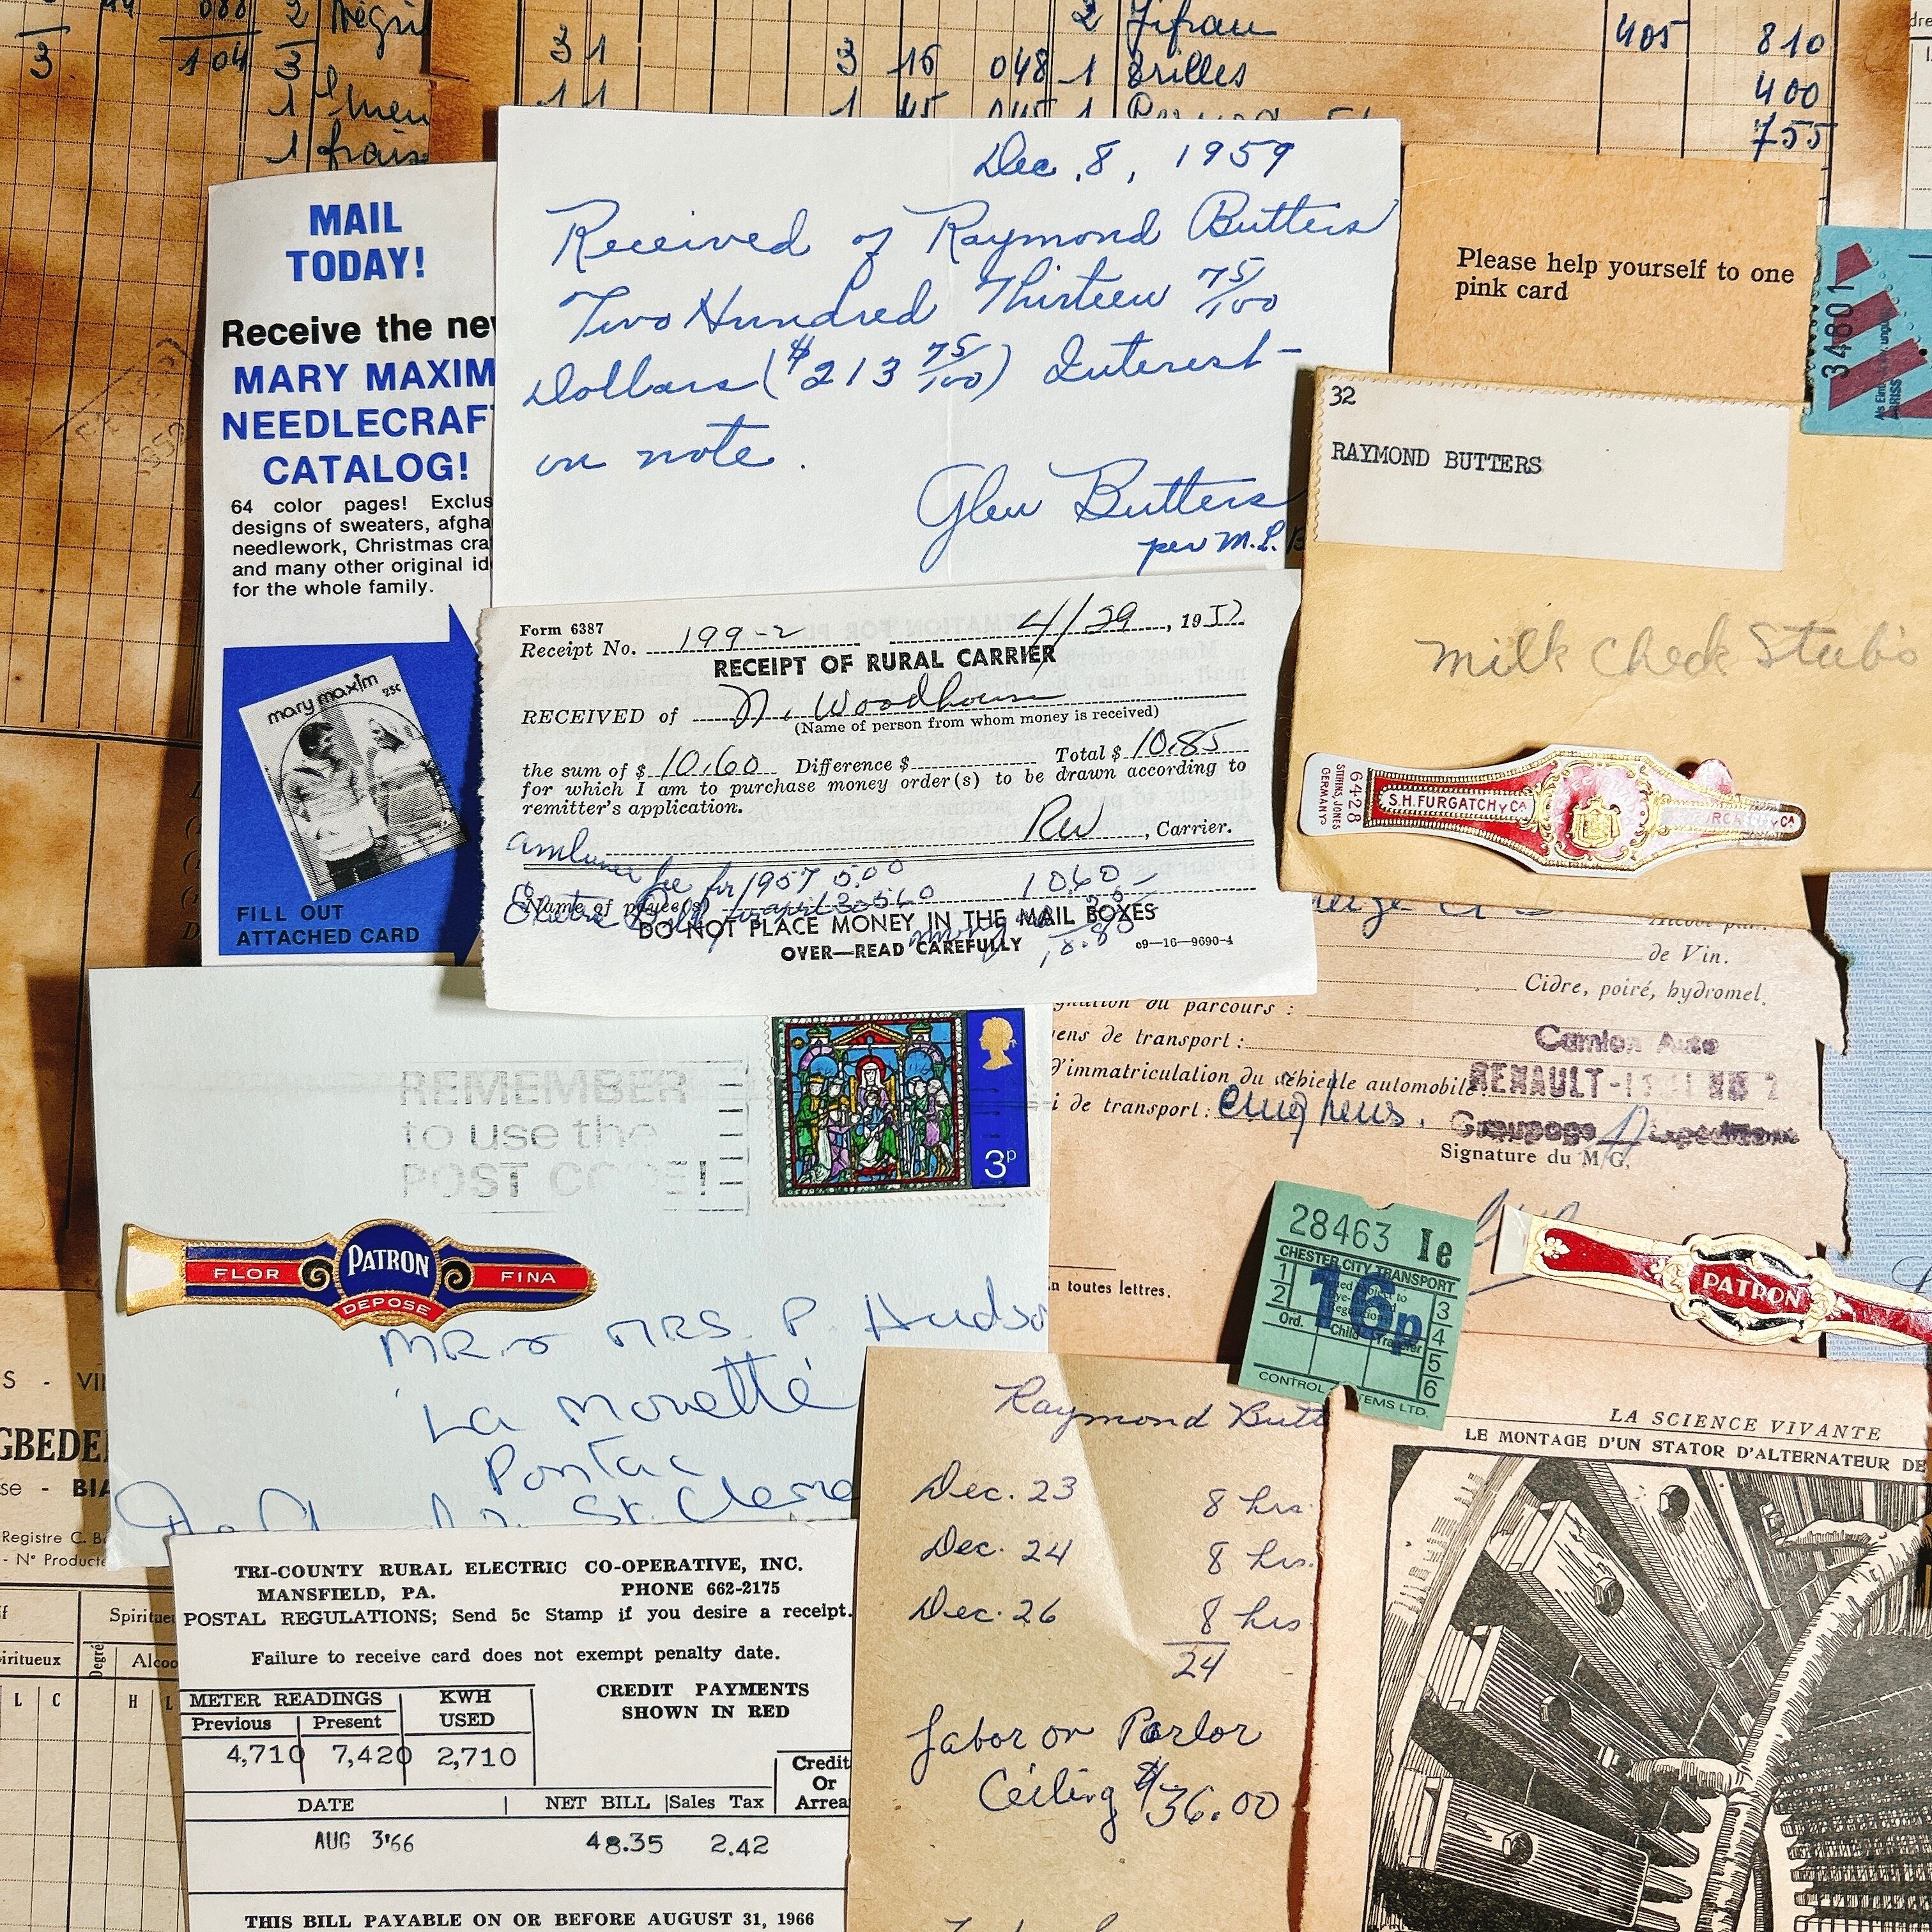 3 104 2 Negri
3
1
1 frais
31 3 16 048 2
11 1 1 Brilles
405 810
400
755
MAIL
TODAY!
Receive the new
MARY MAXIM
NEEDLECRAFT
CATALOG!
64 color pages! Exclus
designs of sweaters, afgha
needlework, Christmas cra
and many other original id
for the whole family.
mary maxim 25¢
FILL OUT
ATTACHED CARD
Dec. 8, 1959
Received of Raymond Butters
Two Hundred Thirteen 75/100
Dollars ($213 75/100) Interest-
on note.
Glen Butters
per M.L. B
Please help yourself to one
pink card
34801
32
RAYMOND BUTTERS
Milk Check Stubs
6428
STIEHNS, JONES
GERMANY
S.H. FURGATCH Y CA
Form 6387
Receipt No. 199-2 4/29, 1957
RECEIPT OF RURAL CARRIER
RECEIVED of N. Woodhouse
(Name of person from whom money is received)
the sum of $ 10.60 Difference $ Total $ 10.85
for which I am to purchase money order(s) to be drawn according to
remitter's application.
RW, Carrier.
fee for 1957 5.00 10.60
Name of payee(s)
DO NOT PLACE MONEY IN THE MAIL BOXES
OVER—READ CAREFULLY c9—16—9690-4
de Vin.
Cidre, poiré, hydromel.
du parcours :
ens de transport :
d'immatriculation du véhicule automobile :
i de transport : cinq heures.
Camion Auto
RENAULT
Groupage Expeditions
Signature du M/G.
n toutes lettres.
REMEMBER
to use the
POST CODE!
3p
FLOR PATRON FINA
DEPOSE
MR & MRS. P. Hudso
La Movette
Pontac
St. Cleme
28463 Ie
CHESTER CITY TRANSPORT
16p
1 3
2 4
Ord. Child Transfer 5
6
CONTROL SYSTEMS LTD.
PATRON
S - VI
GBEDE
se - BIA
Registre C. B
- N° Producte
Spiritueux
iritueux Degré Alcoo
L C H L
TRI-COUNTY RURAL ELECTRIC CO-OPERATIVE, INC.
MANSFIELD, PA. PHONE 662-2175
POSTAL REGULATIONS; Send 5c Stamp if you desire a receipt.
Failure to receive card does not exempt penalty date.
METER READINGS KWH USED CREDIT PAYMENTS
Previous Present SHOWN IN RED
4,710 7,420 2,710
Credit
Or
Arrea
DATE NET BILL Sales Tax
AUG 3'66 48.35 2.42
THIS BILL PAYABLE ON OR BEFORE AUGUST 31, 1966
Raymond Butt
Dec. 23 8 hrs.
Dec. 24 8 hrs.
Dec. 26 8 hrs
24
Labor on Parlor
Ceiling $36.00
LA SCIENCE VIVANTE
LE MONTAGE D'UN STATOR D'ALTERNATEUR DE